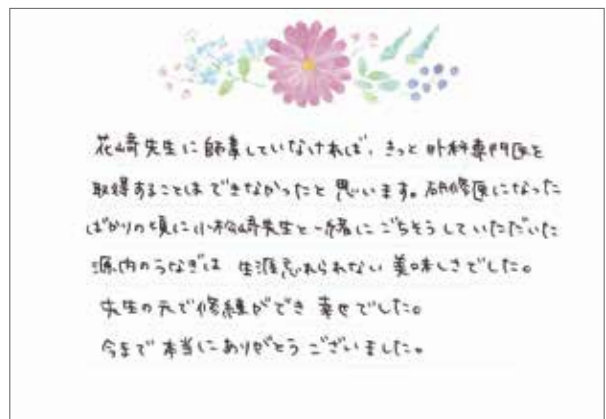 花﨑先生に師事していなければ、きっと外科専門医を
取得することはできなかったと思います。研修医になった
ばかりの頃に小松﨑先生と一緒にごちそうしていただいた
源内のうなぎは 生涯忘れられない 美味しさでした。
先生の元で修練ができ 幸せでした。
今まで 本当にありがとう ございました。